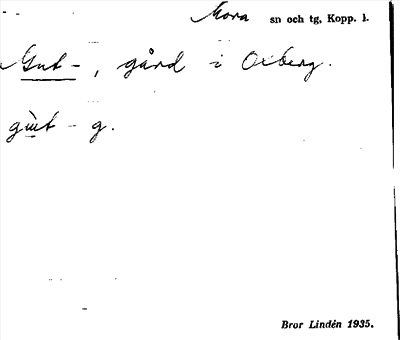 Mora sn och tg, Kopp. l.
Gut-, gård i Oxberg.
gùt - g.
Bror Lindén 1935.